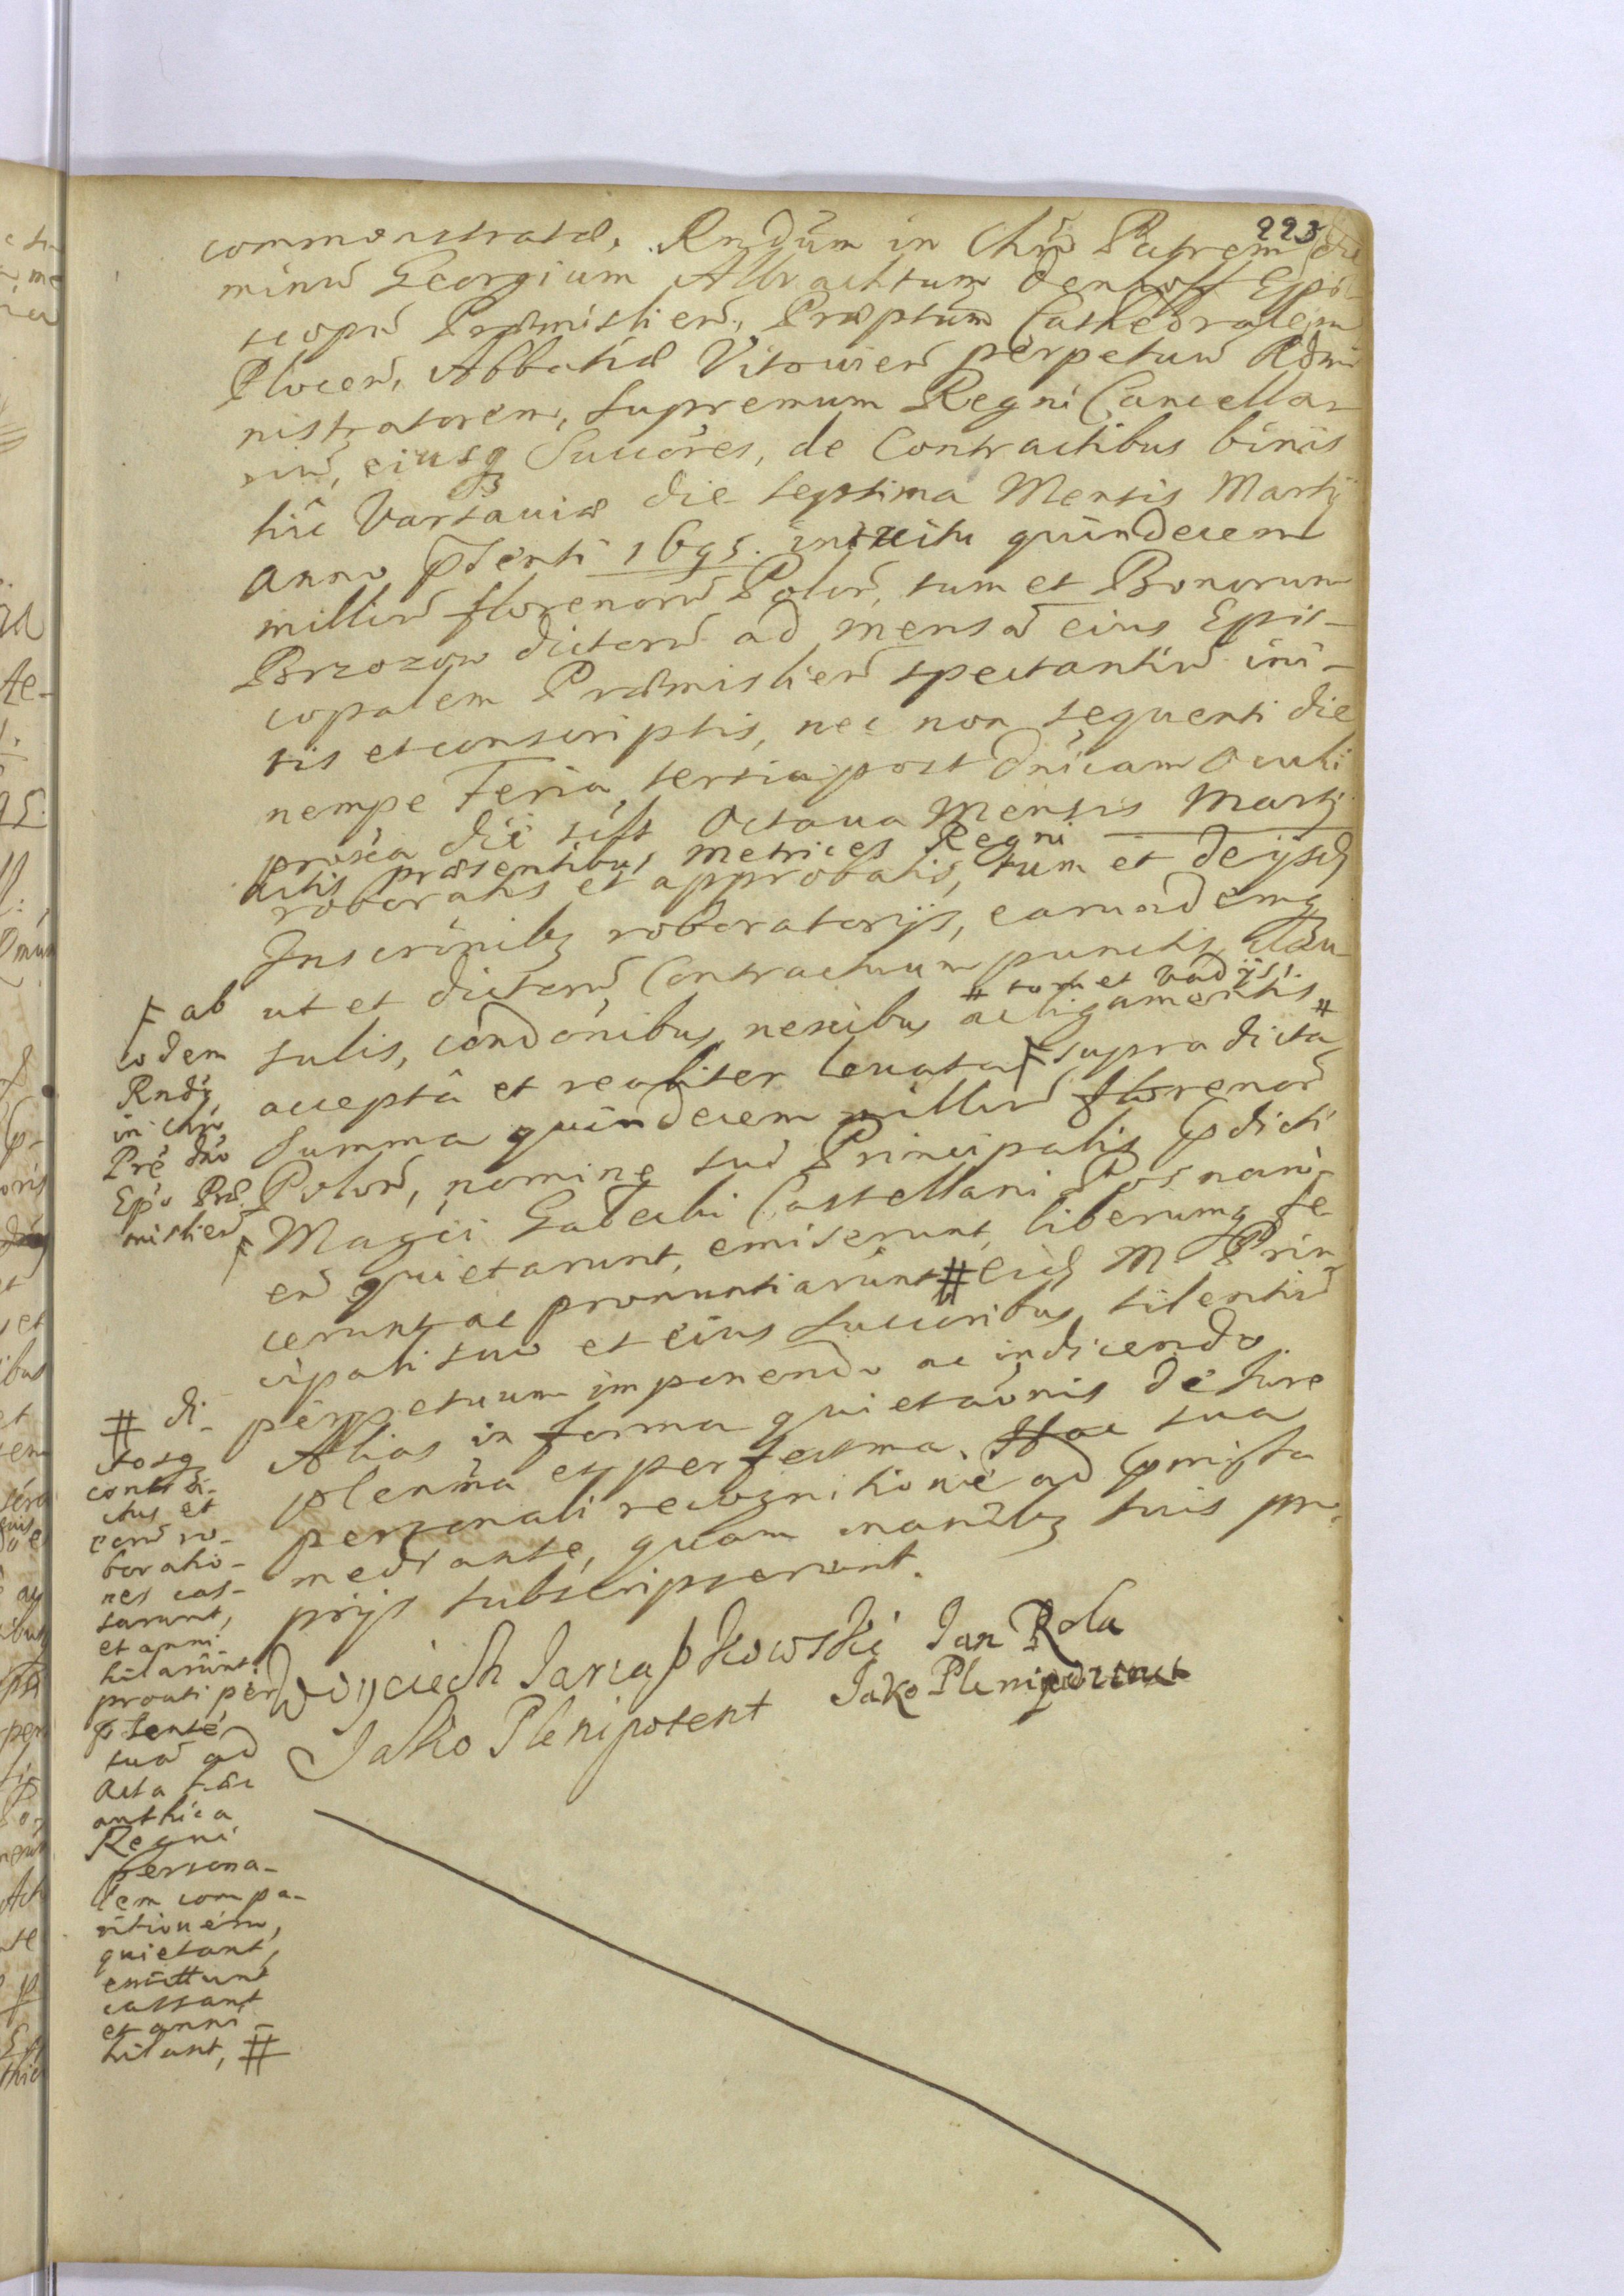 223
commonstratæ, Rndũm in Chrõ Patrem Do
minũ Georgium Albrachtum Denhoff Epi-
scopũ Præmislieñ, Præptũm Cathedralem
Ploceñ, Abbatiæ Vitovieñ perpetuũ Admi
nistratorem, Supremum Regni Cancella-
riũ, eiusq Succôres, de Contractibus binis
hic Varsaviæ die septima Mensis Martij
Anno psenti 1695. intuitu quindecem
milliũ florenorũ Poloñ, tum et Bonorum
Brzozow dictorũ ad mensã eius Epis-
copalem Præmislieñ spectantiũ ini-
tis et conscriptis, nec non sequenti die
nempe Feria tertia post Dnicam Oculi
proxia die scilt Octava Mensis Martij
Actis præsentibus Metrices Regni
roboratis et approbatis, tum et de ijsd
Inscrõnibq roboratorijs, earundemq
ut et dictorũ Contractuum punctis, clau
sulis, condõnibus, nexibus ac ligamentis
# tum et vadijs. #
acceptâ et realiter levata F supra dicta
Summa quindecem milliũ florenorũ
Poloñ, nomine sui Principalis pdicti
Magci Gałecki Castellani Posnani-
eñ quietarunt, emiserunt, liberumq fe-
cerunt ac pronuntiarunt # eid M Prin
cipali suo et eius Succoribus silentiũ
perpetuum imponendo ac indicendo
Alias in forma quietaõnis de Jure
plenĩma et perfectĩma. Hac sua
personali recognitione ad pmissa
mediante, quam manibq suis pro
prijs subscripserunt.
Woyciech Jarząpkowski
Jako Plenipotent
Jan Rola
Jako Plenipotent
F ab
eodem
Rndo
in Chrõ
Pre Dño
Epõ Præ
mislieñ
F
# di-
ctosq
contra-
ctus et
eorũ ro-
boratio-
nes cas-
sarunt,
et anni-
hilarunt,
prouti per
psentẽ
suã ad
Acta hæc
anthica
Regni
persona-
lem compa-
ritionem,
quietant,
emittunt
cassant
et anni-
hilant, #